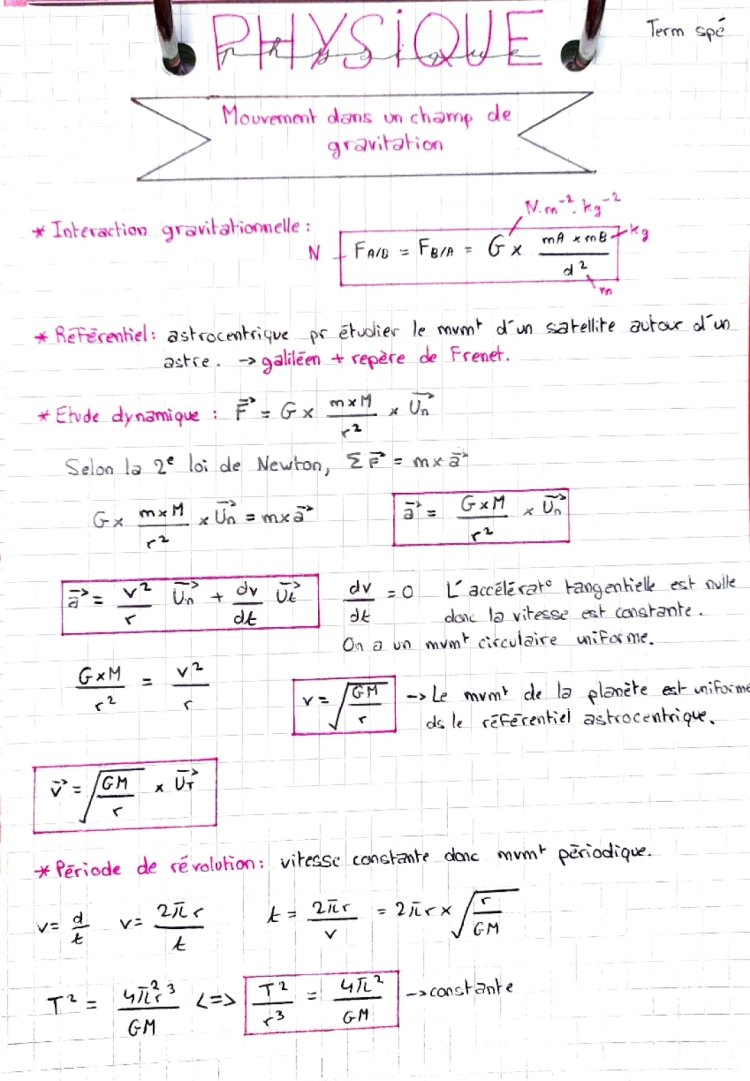 PHYSIQUE
Physique
Term spé
Mouvement dans un champ de
gravitation
* Interaction gravitationnelle :
N.m⁻².kg⁻²
N F A/B = F B/A = G × (mA × mB)/d² kg
m
* Référentiel : astrocentrique pr étudier le mvmt d'un satellite autour d'un
astre. → galiléen + repère de Frenet.
* Etude dynamique : F⃗ = G × (m×M)/r² × Un⃗
Selon la 2e loi de Newton, ΣF⃗ = m×a⃗
G× (m×M)/r² × Un⃗ = m×a⃗   a⃗ = (G×M)/r² × Un⃗
a⃗ = v²/r Un⃗ + dv/dt Ut⃗   dv/dt = 0   L'accélérat° tangentielle est nulle
donc la vitesse est constante.
On a un mvmt circulaire uniforme.
(G×M)/r² = v²/r   v = √(GM/r) → Le mvmt de la planète est uniforme
ds le référentiel astrocentrique.
v⃗ = √(GM/r) × UT⃗
* Période de révolution : vitesse constante donc mvmt périodique.
v = d/t   v = 2πr/t   t = 2πr/v = 2πr × √(r/GM)
T² = 4π²r³/GM <=> T²/r³ = 4π²/GM → constante